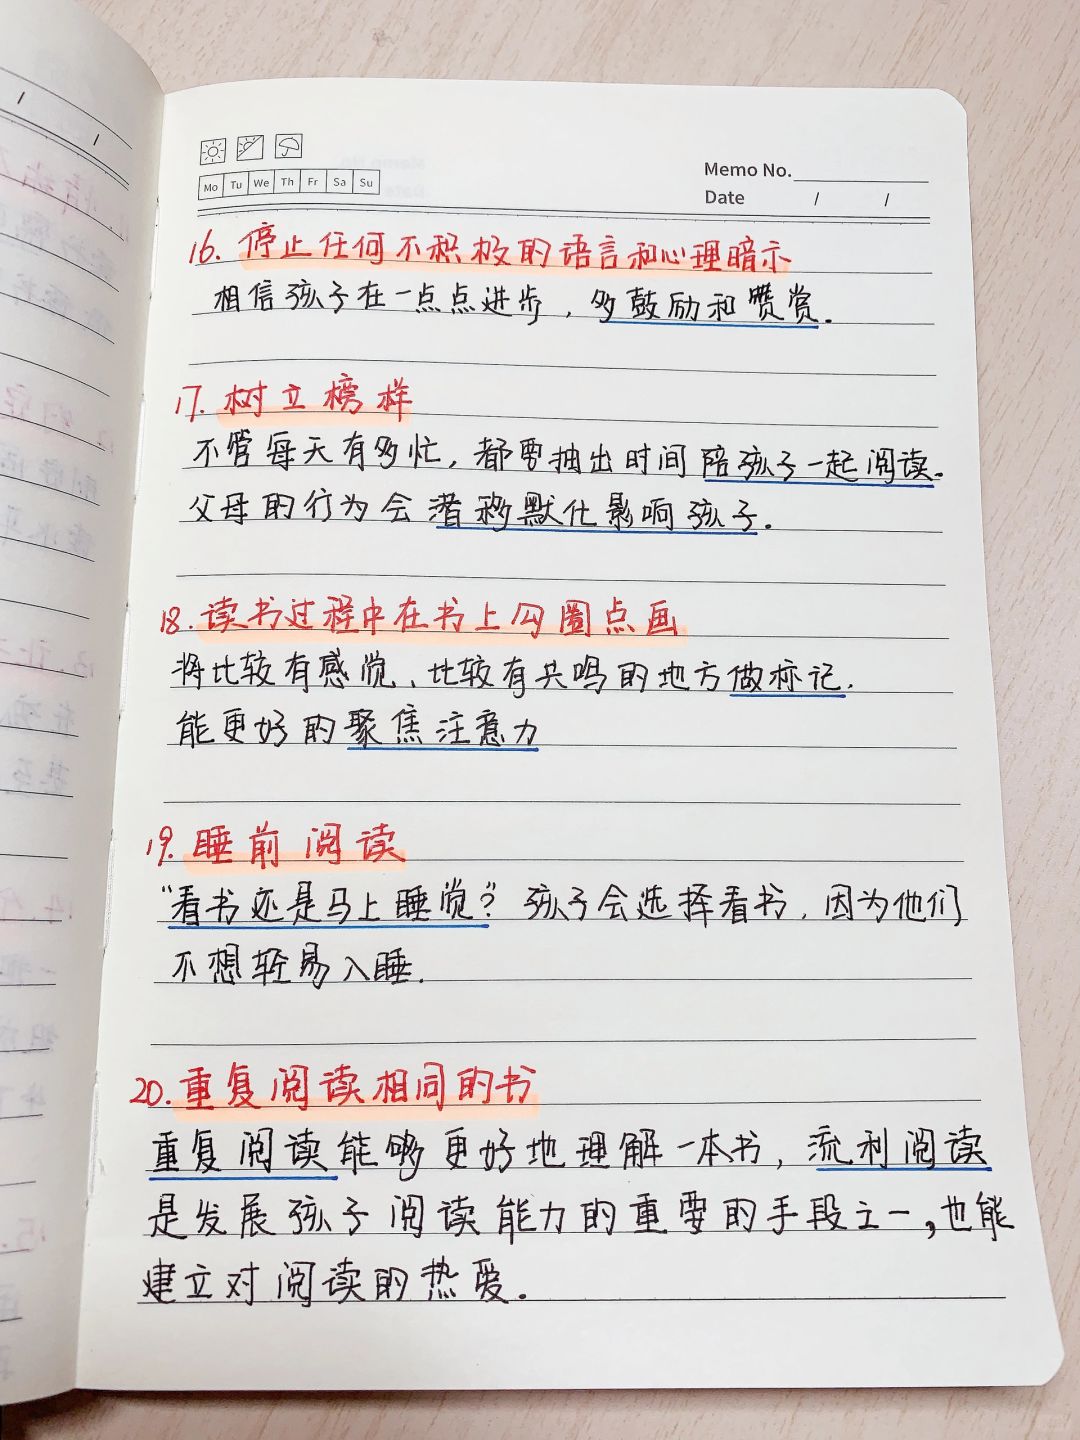 Mo Tu We Th Fr Sa Su
Memo No.
Date / /
16. 停止任何不积极的语言和心理暗示
相信孩子在一点点进步，多鼓励和赞赏.
17. 树立榜样
不管每天有多忙，都要抽出时间陪孩子一起阅读.
父母的行为会潜移默化影响孩子.
18. 读书过程中在书上勾圈点画
将比较有感觉、比较有共鸣的地方做标记.
能更好的聚焦注意力
19. 睡前阅读
“看书还是马上睡觉？孩子会选择看书，因为他们
不想轻易入睡.
20. 重复阅读相同的书
重复阅读能够更好地理解一本书，流利阅读
是发展孩子阅读能力的重要的手段之一，也能
建立对阅读的热爱.